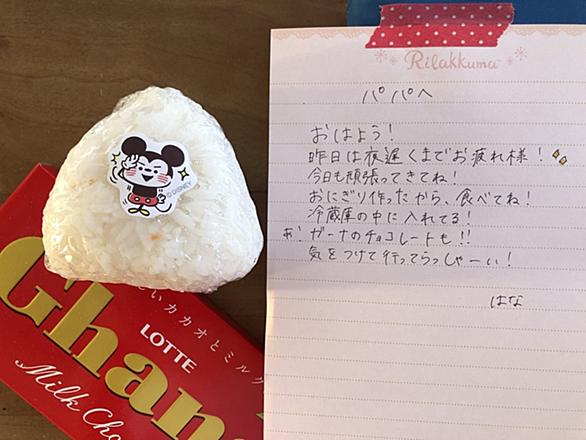 Rilakkuma
パパへ
おはよう!
昨日は夜遅くまでお疲れ様!
今日も頑張ってきてね!
おにぎり作ったから、食べてね!
冷蔵庫の中に入れてる!
あ!ガーナのチョコレートも!!
気をつけて行ってらっしゃーい!
はな
© DISNEY
いカカオとミルク
Ghana
LOTTE
Milk Cho